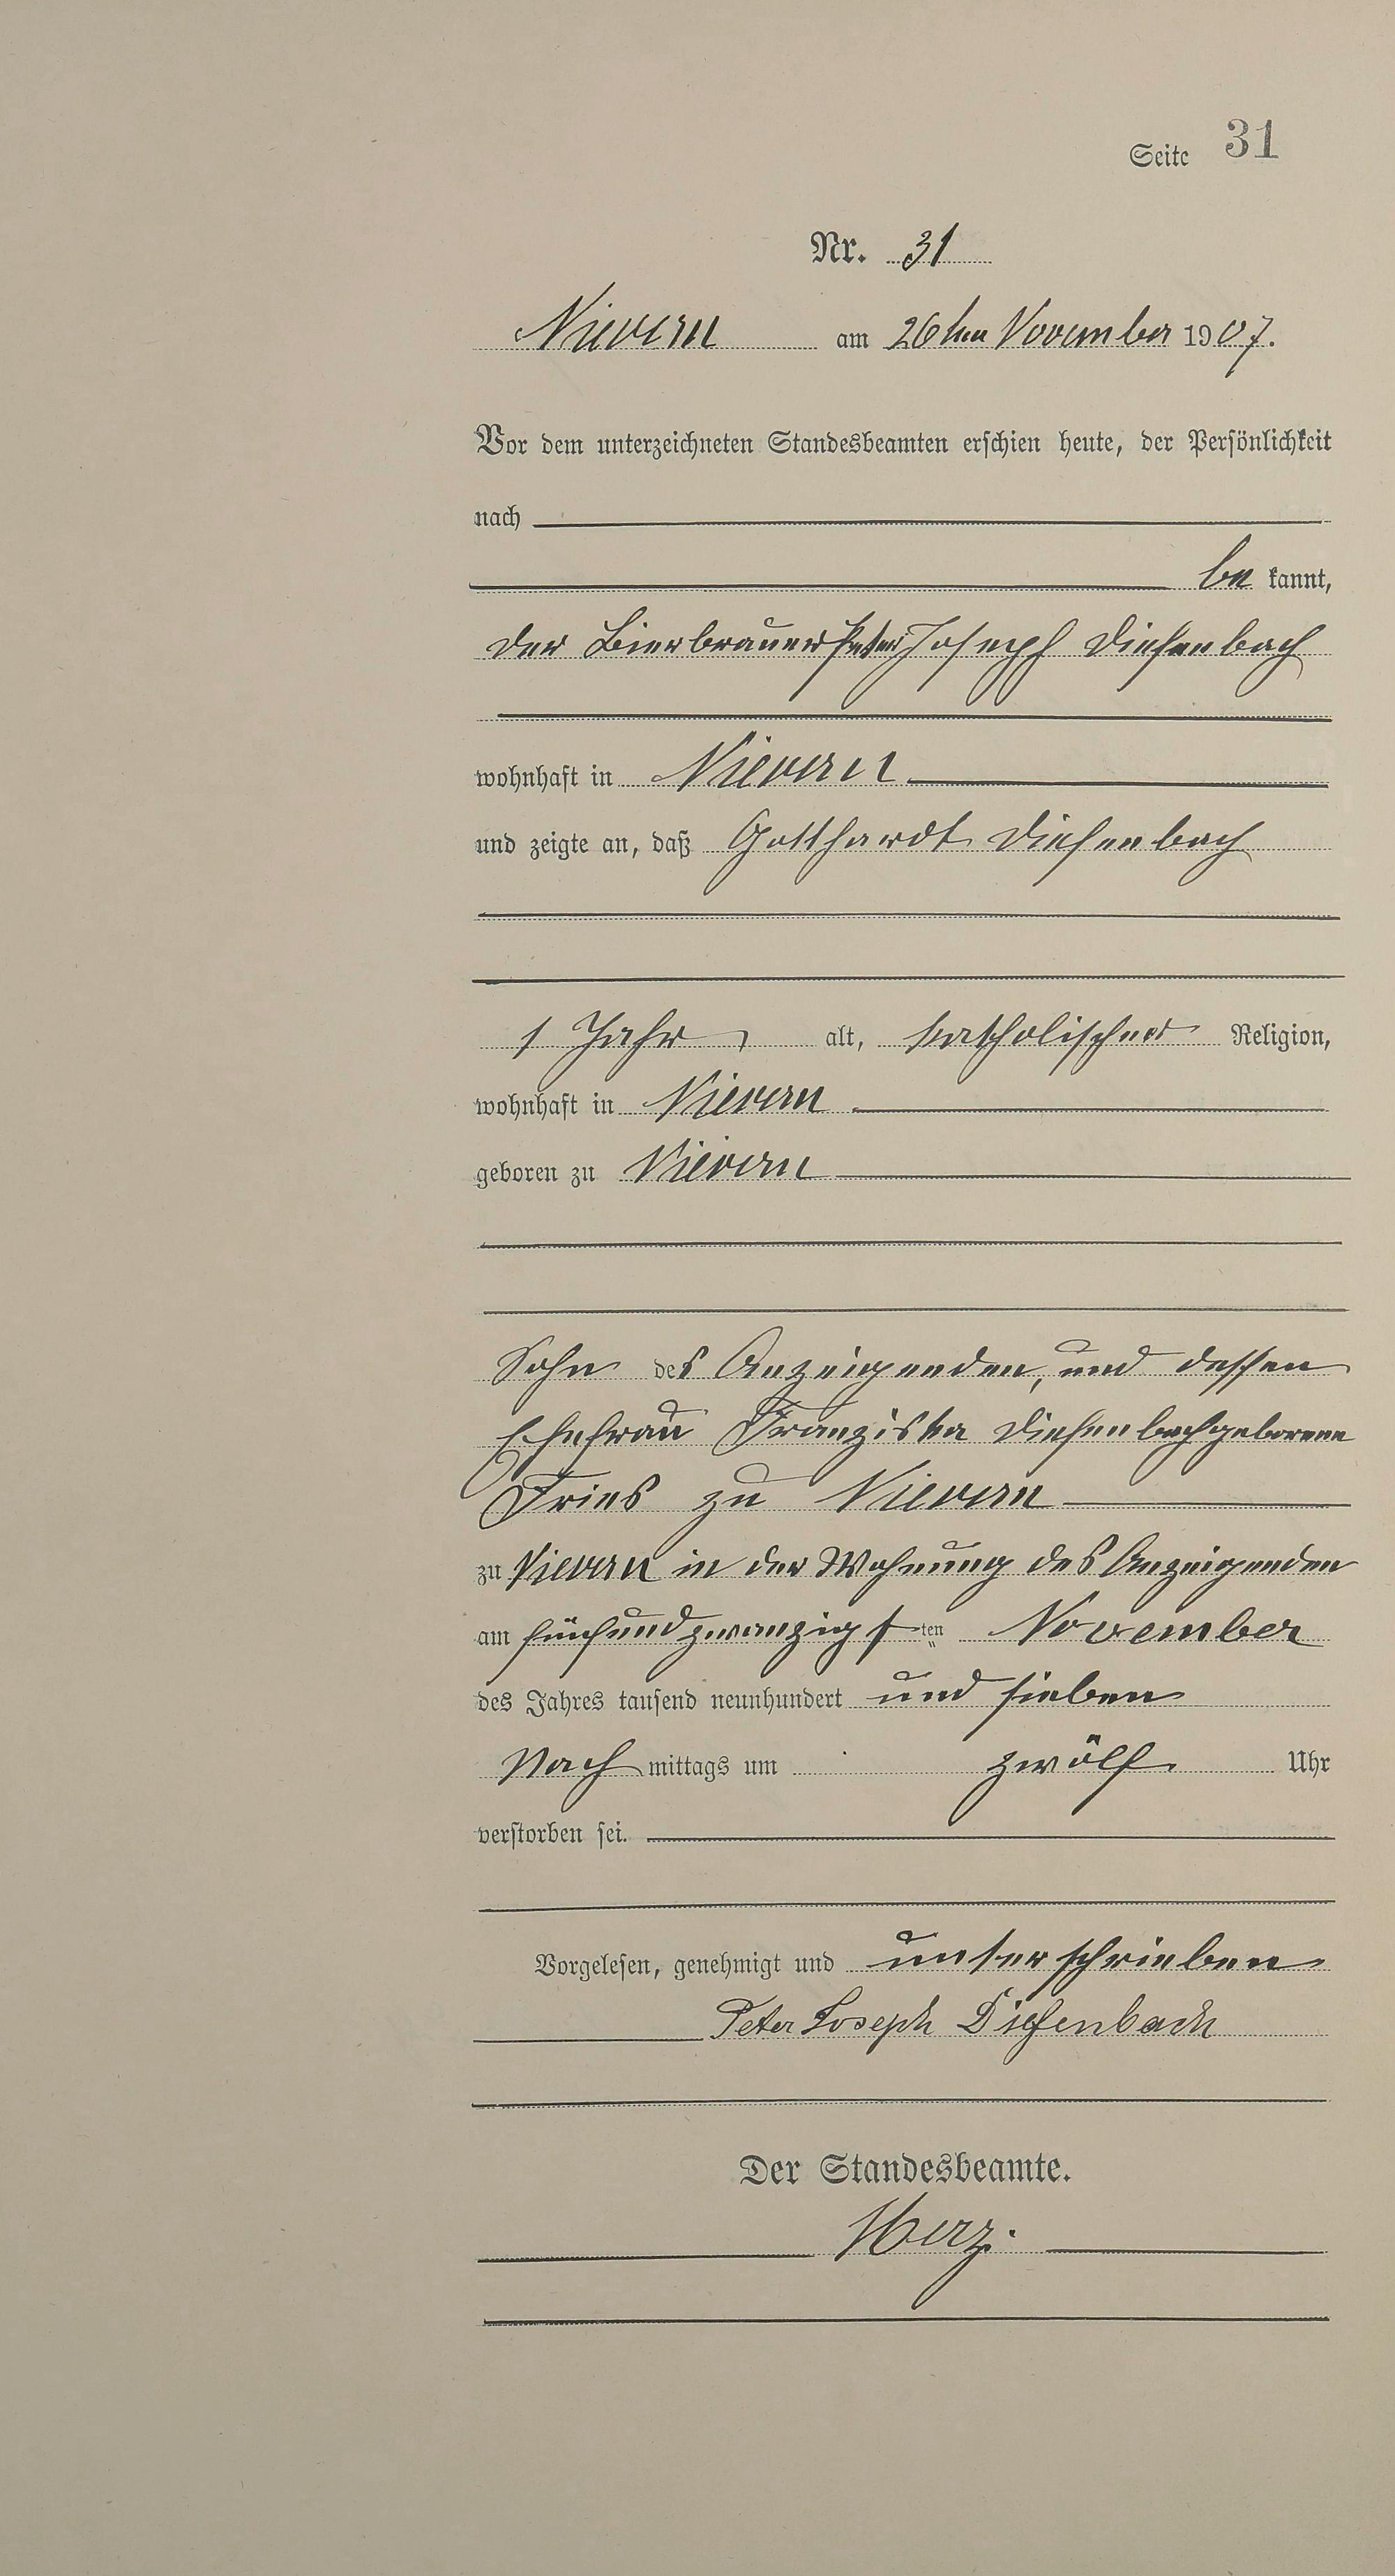 Seite 31
Nr. 31
Nievern am 26ten November 1907.
Vor dem unterzeichneten Standesbeamten erschien heute, der Persönlichkeit
nach
be kannt,
der Bierbrauer Peter Joseph Diefenbach
wohnhaft in Nievern
und zeigte an, daß Gotthardt Diefenbach
1 Jahr, alt, katholischer Religion,
wohnhaft in Nievern
geboren zu Nievern
Sohn des Anzeigenden, und dessen
Ehefrau Franziska Diefenbach geborene
Fries zu Nievern
zu Nievern in der Wohnung des Anzeigenden
am fünfundzwanzigsten November
des Jahres tausend neunhundert und sieben
Nach mittags um zwölf Uhr
verstorben sei.
Vorgelesen, genehmigt und unterschrieben
Peter Joseph Diefenbach
Der Standesbeamte.
Herz.